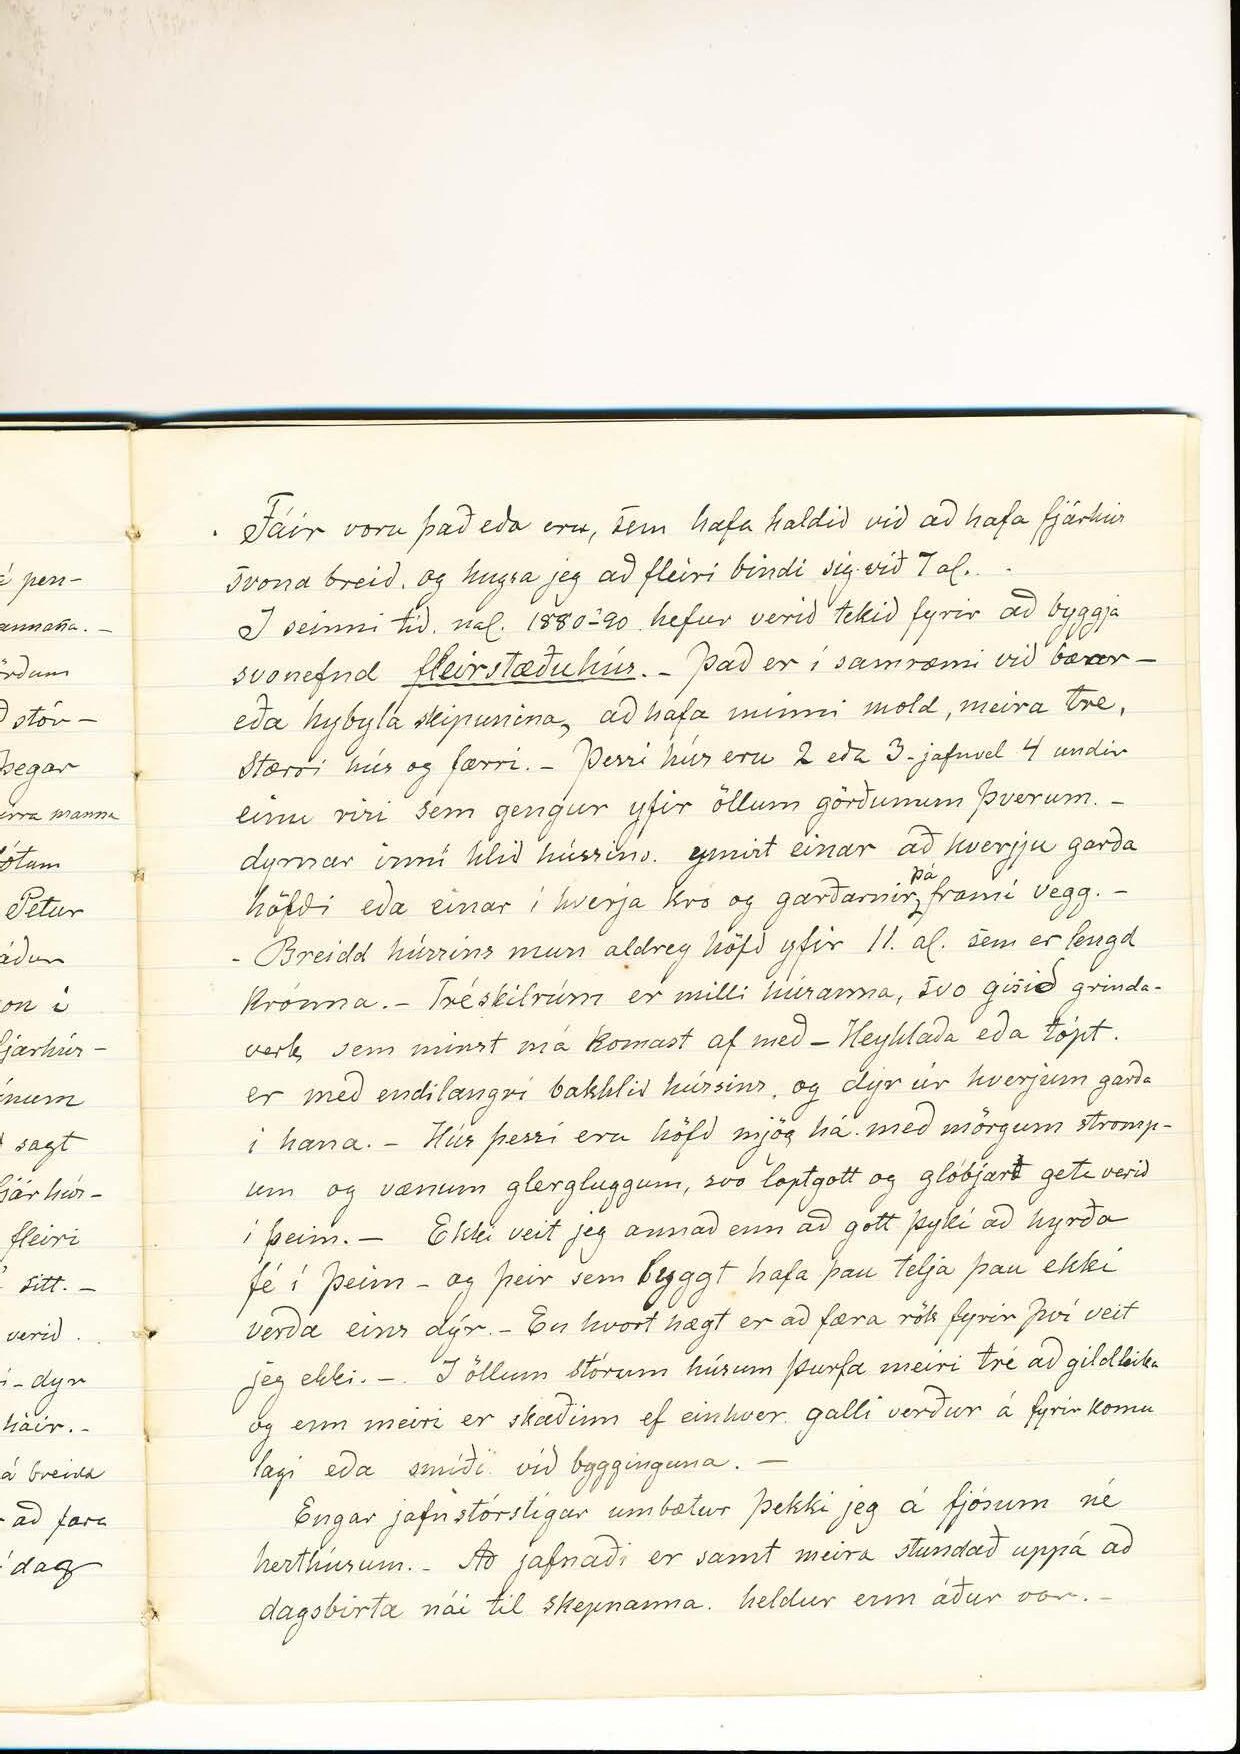 á pen-
annaña. -
örðum
ð stór -
þegar
erra manna
ótum
Petur
áðun
on i
fjarhús -
ínum
sagt
fjár hús -
fleiri
sitt. -
verið .
i - dyr
háir. -
á breida
- að fara
í dag
. Fáir voru það eða eru, sem hafa haldið við að hafa fjárhús
svona breið. og hugsa jeg að fleiri bindi sig við 7 al. .
I seinni tíð. nal. 1880-90 hefur verið tekið fyrir að byggja
svonefnd fleirstæðuhús. - Það er í samræmi við bæar -
eða hybyla skipunina, að hafa minni mold, meira tre,
stærri hús og færri. - Þessi hús eru 2 eða 3 - jafnvel 4 undir
einu risi sem gengur yfir öllum görðunum þverum. -
dyrnar inní hlið hússins. ymist einar að hverjju garða
höfði eða einar í hverja kró og garðarnir þá frami vegg. -
- Breidd hússins mun aldrey höfð yfir 11. al. sem er lengd
krónna. - Tréskilrúm er milli húsanna, svo gisið grinda-
verk sem minst má komast af með - Heyhlaða eða tópt.
er með endilangri bakhlið hússins, og dyr úr hverjum garða
i hana. - Hús þessi eru höfð mjög há með mörgum stromp-
um og vænum glergluggum, svo loptgott og glóbjart geta verið
í þeim. - Ekki veit jeg annað enn að gott þyki að hyrða
fé í þeim - og þeir sem byggt hafa þau telja þau ekki
verða eins dýr. - En hvort hægt er að færa rök fyrir því veit
jeg ekki. - I öllum stórum húsum þurfa meiri tré að gildleika
og enn meiri er skaðinn ef einhver galli verður á fyrir komu
lagi eða smíði við bygginguna. -
Engar jafn stórstigar umbætur þekki jeg á fjósum né
hesthúsum. - Að jafnaði er samt meira stundað uppá að
dagsbirta nái til skepnanna. heldur enn áður var. -